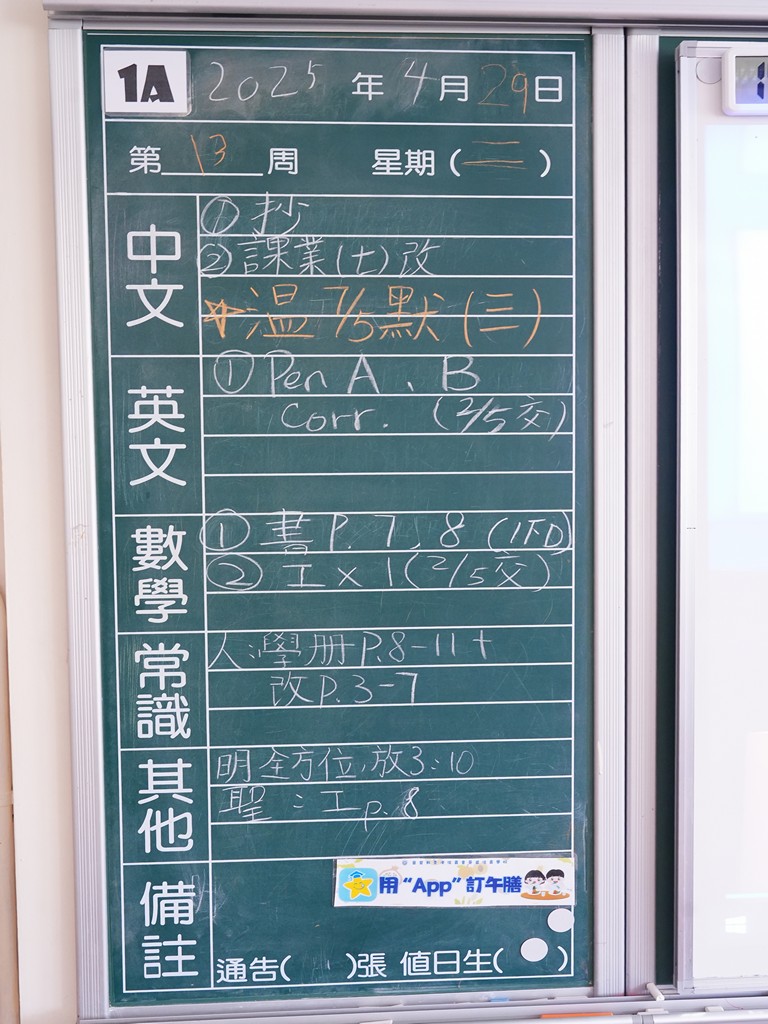 1A 2025 年 4 月 29 日
第 13 周 星期 ( 二 )
中文
① 抄
② 課業(七)改
☆溫 7/5 默 (三)
英文
① Pen A、B
Corr. (2/5交)
數學
① 書 P. 7, 8 (1下D)
② 工 x 1 (2/5交)
常識
人:學册 P.8-11+
改 P.3-7
其他
明全方位,放3:10
聖:工 p. 8
備註
用 “App” 訂午膳
通告( )張 值日生( )